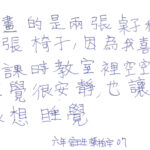 畫的是兩張桌子
張椅子，因為我喜
課時教室裡空空
覺很安靜，也讓
想睡覺
六年
07